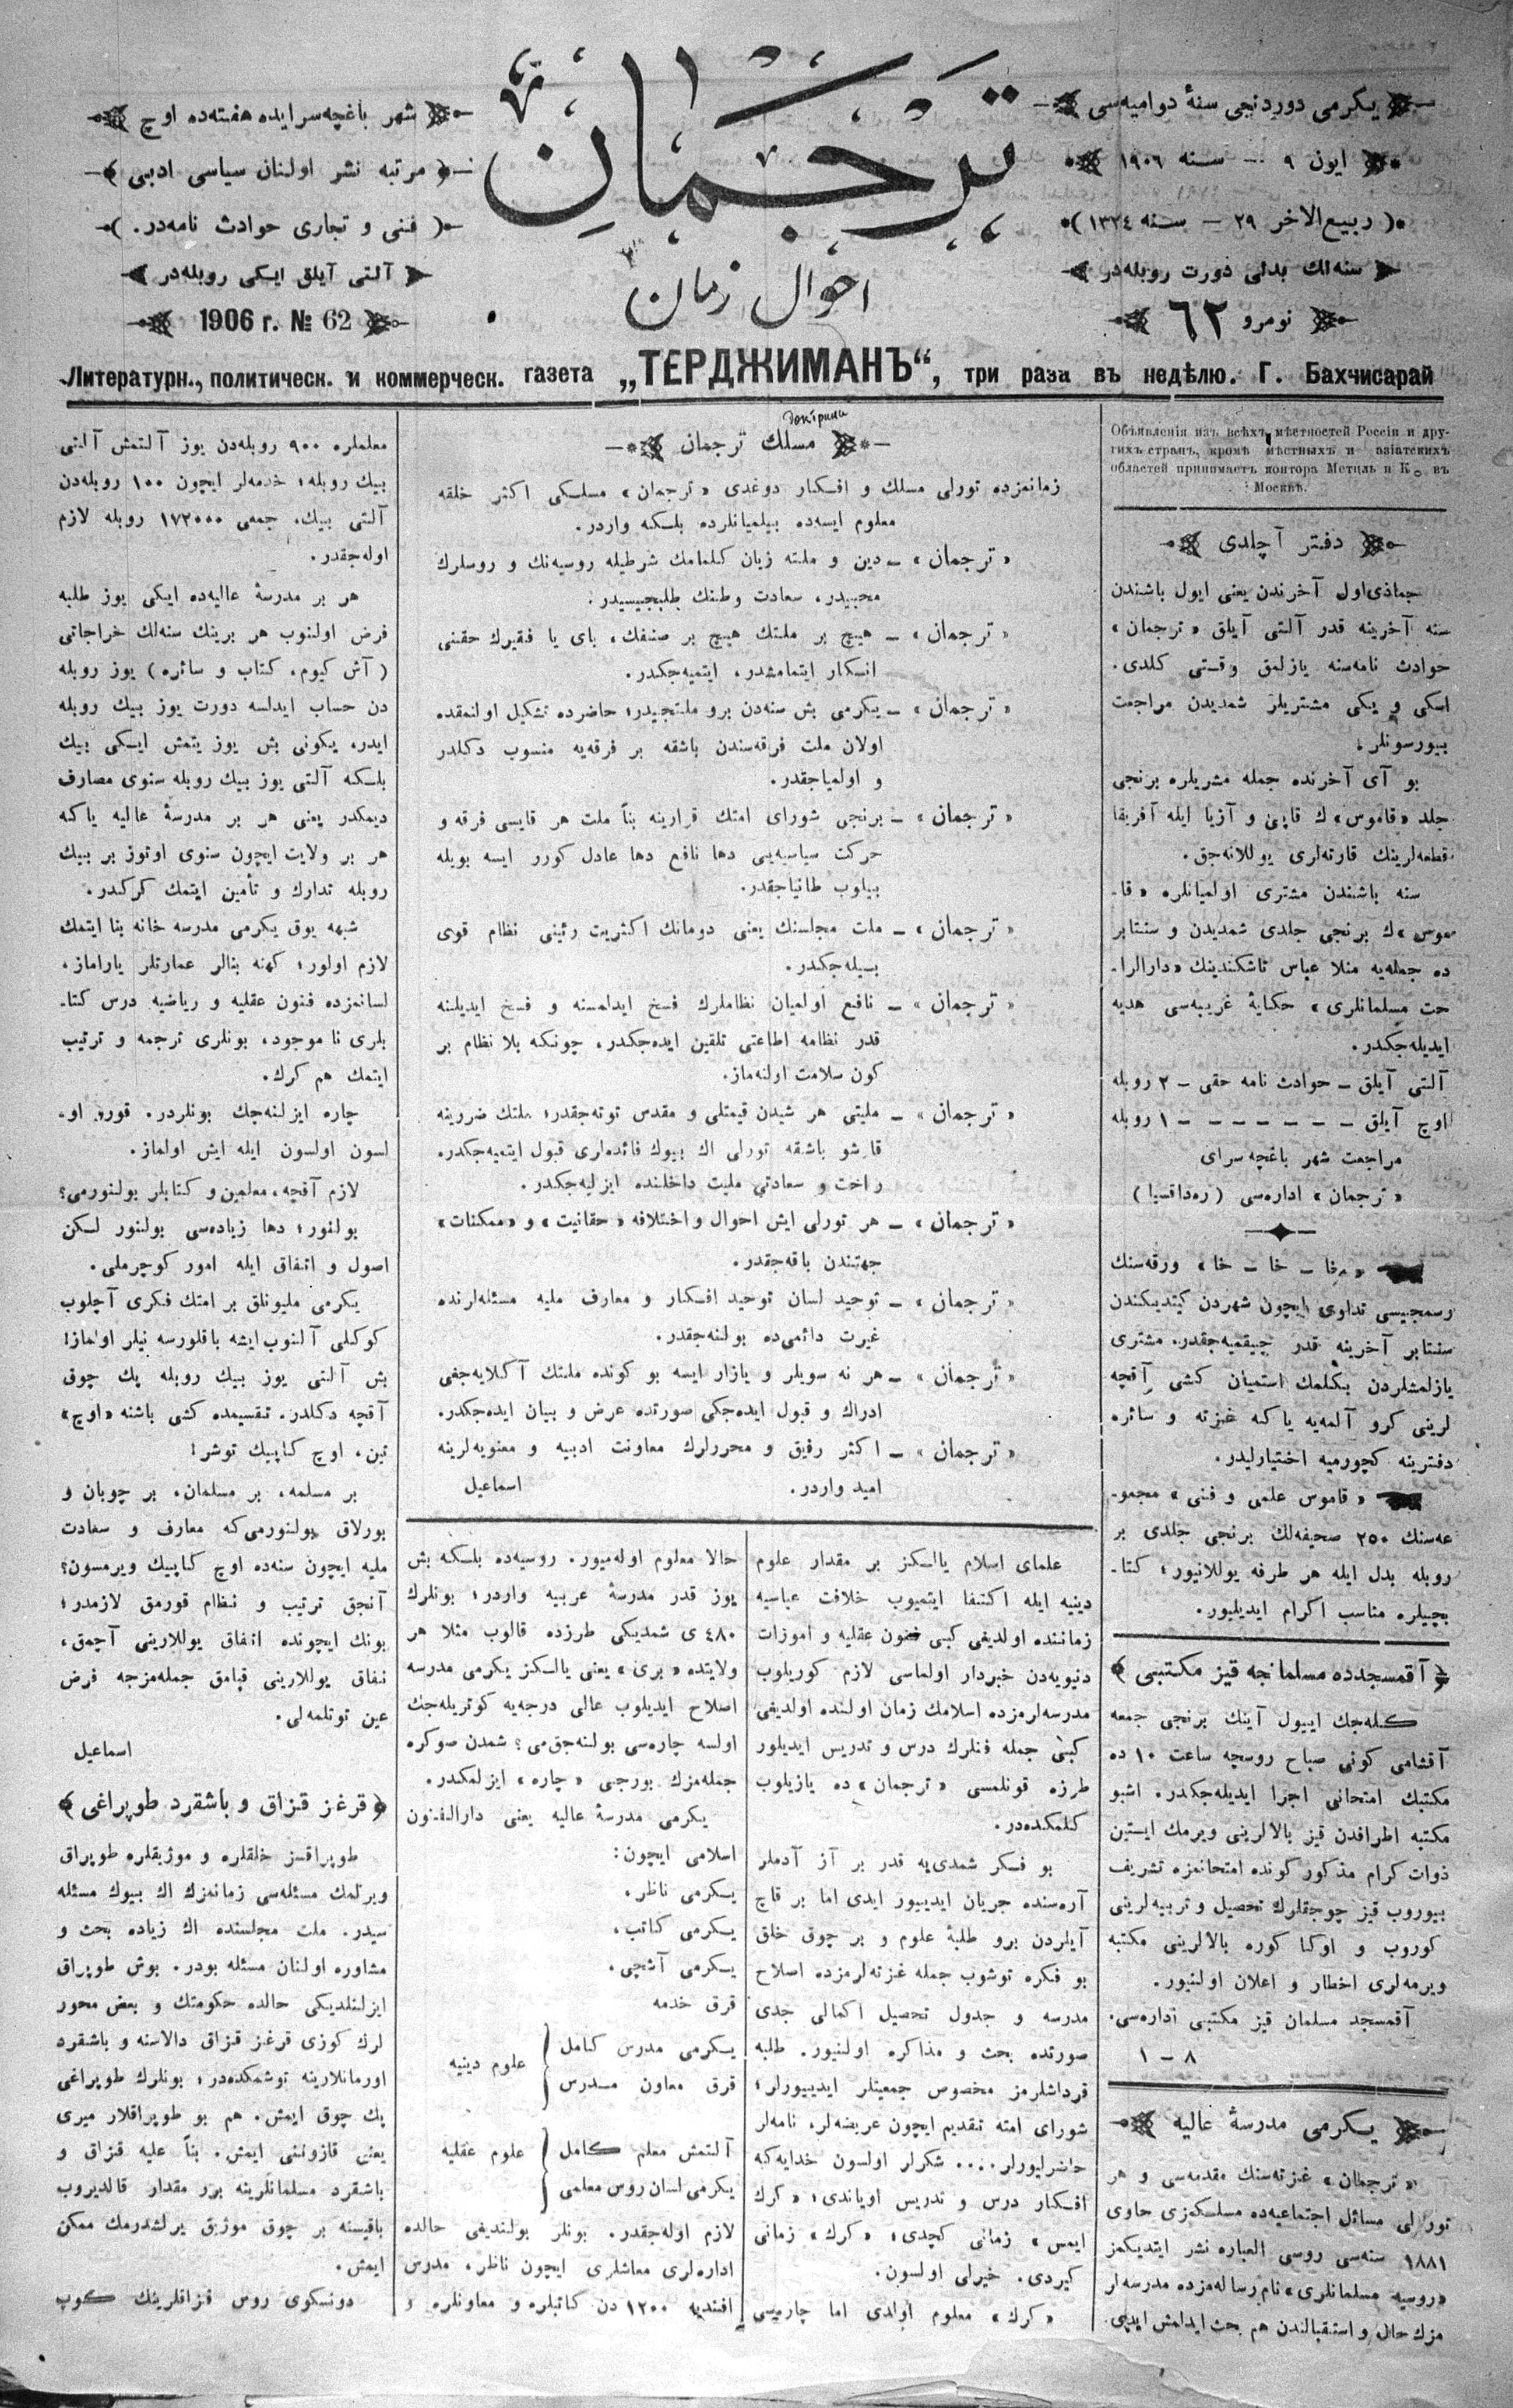 يكرمى دوردنجى سنۀ دواميه‌سى
ايون ٩ — سنه ١٩٠٦
(ربيع الاخر ٢٩ — سنه ١٣٢٤)
سنه‌لك بدلى دورت روبله‌در
نومرو ٦٢
ترجمان
احوال زمان
شهر باغچه‌سرايده هفته‌ده اوچ
مرتبه نشر اولنان سياسى ادبى
(فنى و تجارى حوادث نامه‌در.)
آلتى آيلق ايكى روبله‌در
1906 г. № 62
Литературн., политическ. и коммерческ. газета „ТЕРДЖИМАНЪ“, три раза въ недѣлю. Г. Бахчисарай
Объявленія изъ всѣхъ мѣстностей Россіи и дру-
гихъ странъ, кромѣ мѣстныхъ и азіатскихъ
областей принимаетъ контора Метцль и Ко въ
Москвѣ.
دفتر آچلدى
جماذى‌اول آخرندن يعنى ايول باشندن
سنه آخرينه قدر آلتى آيلق «ترجمان»
حوادث نامه‌سنه يازلمق وقتى كلدى.
اسكى و يكى مشتريلر شمديدن مراجعت
بيورسونلر؛
بو آى آخرنده جمله مشريلره برنجى
جلد «قاموس»ك قاپى و آزيا ايله آفريقا
قطعه‌لرينك قارته‌لرى يوللانه‌جق.
سنه باشندن مشترى اولميانلره «قا-
موس»ك برنجى جلدى شمديدن و سنتابر
ده جمله‌يه منلا عباس تاشكندينك «دارالرا-
حت مسلمانلرى» حكايۀ غريبه‌سى هديه
ايديله‌جكدر.
آلتى آيلق — حوادث نامه حقى — ٢ روبله
اوچ آيلق — — — — — — — ١ روبله
مراجعت شهر باغچه سراى
«ترجمان» اداره‌سى (ره‌داقسيا)
«خا — خا — خا» ورقه‌سنك
رسمجيسى تداوى ايچون شهردن كيتديكندن
سنتابر آخرينه قدر چيقميه‌جقدر. مشترى
يازلمشلردن بكلمك استميان كشى آقچه
لرينى كرو آلمه‌يه ياكه غزته و سائره
دفترينه كچورميه اختيارليدر.
«قاموس علمى و فنى» مجمو-
عه‌سنك ٢٥٠ صحيفه‌لك برنجى جلدى بر
روبله بدل ايله هر طرفه يوللانيور؛ كتا-
بچيلره مناسب اكرام ايديليور.
﴿آقمسجدده مسلمانجه قيز مكتبى﴾
كله‌جك ايبول آينك برنجى جمعه
آقشامى كونى صباح روسچه ساعت ١٠ ده
مكتبك امتحانى اجرا ايديله‌جكدر. اشبو
مكتبه اطرافدن قيز بالالرينى ويرمك ايستين
ذوات كرام مذكور كونده امتحانمزه تشريف
بيوروب قيز چوجقلرك تحصيل و تربيه‌لرينى
كوروب و اوكا كوره بالالرينى مكتبه
ويرمه‌لرى اخطار و اعلان اولنيور.
آقمسجد مسلمان قيز مكتبى اداره‌سى.
٨ — ١
يكرمى مدرسۀ عاليه
«ترجمان» غزته‌سنك مقدمه‌سى و هر
تورلى مسائل اجتماعيه‌ده مسلكمزى حاوى
١٨٨١ سنه‌سى روسى العباره نشر ايتديكمز
«روسيه مسلمانلرى» نام رساله‌مزده مدرسه‌لر
مزك حال و استقبالندن هم بحث ايدلمش ايدى.
مسلك ترجمان
زمانمزده تورلى مسلك و افكار دوغدى «ترجمان» مسلكى اكثر خلقه
معلوم ايسه‌ده بيلميانلرده بلكه واردر.
«ترجمان» — دين و ملته زيان كلمامك شرطيله روسيه‌نك و روسلرك
محبيدر، سعادت وطنك طلبجيسيدر.
«ترجمان» — هيچ بر ملتك هيچ بر صنفك، باى يا فقيرك حقنى
انكار ايتمامشدر، ايتميه‌جكدر.
«ترجمان» — يكرمى بش سنه‌دن برو ملتجيدر؛ حاضرده تشكيل اولنمقده
اولان ملت فرقه‌سندن باشقه بر فرقه‌يه منسوب دكلدر
و اولمياجقدر.
«ترجمان» — برنجى شوراى امتك قرارينه بناً ملت هر قايسى فرقه و
حركت سياسيه‌يى دها نافع دها عادل كورر ايسه بويله
بيلوب طانياجقدر.
«ترجمان» — ملت مجلسنك يعنى دومانك اكثريت رئينى نظام قوى
بيله‌جكدر.
«ترجمان» — نافع اولميان نظاملرك فسخ ايدلمسنه و فسخ ايديلنه
قدر نظامه اطاعتى تلقين ايده‌جكدر، چونكه بلا نظام بر
كون سلامت اولنه‌ماز.
«ترجمان» — مليتى هر شيدن قيمتلى و مقدس توته‌جقدر؛ ملتك ضررينه
قارشو باشقه تورلى اك بيوك فائده‌لرى قبول ايتميه‌جكدر.
راحت و سعادتى مليت داخلنده ايزليه‌جكدر.
«ترجمان» — هر تورلى ايش احوال و اختلافه «حقانيت» و «ممكنات»
جهتندن باقه‌جقدر.
«ترجمان» — توحيد لسان توحيد افكار و معارف مليه مسئله‌لرنده
غيرت دائمى‌ده بولنه‌جقدر.
«ترجمان» — هر نه سويلر و يازار ايسه بو كونده ملتك آكلايه‌جغى
ادراك و قبول ايده‌جكى صورتده عرض و بيان ايده‌جكدر.
«ترجمان» — اكثر رفيق و محررلرك معاونت ادبيه و معنويه‌لرينه
اميد واردر. اسماعيل
علماى اسلام يالكز بر مقدار علوم
دينيه ايله اكتفا ايتميوب خلافت عباسيه
زماننده اولديغى كبى فنون عقليه و اموزات
دنيويه‌دن خبردار اولماسى لازم كوريلوب
مدرسه‌لرمزده اسلامك زمان اولنده اولديغى
كبى جمله فنلرك درس و تدريس ايديلور
طرزه قونلمسى «ترجمان» ده يازيلوب
كلمكده‌در.
بو فكر شمدى‌يه قدر بر آز آدملر
آره‌سنده جريان ايدييور ايدى اما بر قاچ
آيلردن برو طلبۀ علوم و بر چوق خلق
بو فكره توشوب جمله غزته‌لرمزده اسلاح
مدرسه و جدول تحصيل اكمالى جدى
صورتده بحث و مذاكره اولنيور. طلبه
قرداشلرمز مخصوص جمعيتلر ايدييورلر؛
شوراى امته تقديم ايچون عريضه‌لر، نامه‌لر
حاضرليورلر.... شكرلر اولسون خدايه‌كه
افكار درس و تدريس اوياندى؛ «كرك
ايمس» زمانى كچدى؛ «كرك» زمانى
كيردى. خيرلى اولسون.
«كرك» معلوم اولدى اما چاره‌سى
حالا معلوم اوله‌ميور. روسيه‌ده بلكه بش
يوز قدر مدرسۀ عربيه واردر؛ بونلرك
٤٨٠ ى شمديكى طرزده قالوب مثلا هر
ولايتده «برى» يعنى يالكز يكرمى مدرسه
اصلاح ايديلوب عالى درجه‌يه كوتريله‌جك
اولسه چاره‌سى بولنه‌جق‌مى؟ شمدن صوكره
جمله‌مزك بورجى «چاره» ايزلمكدر.
يكرمى مدرسۀ عاليه يعنى دارالفنون
اسلامى ايچون:
يكرمى ناظر.
يكرمى كاتب.
يكرمى آشچى.
قرق خدمه
يكرمى مدرس كامل
قرق معاون مدرس
علوم دينيه
آلتمش معلم كامل
يكرمى لسان روس معلمى
علوم عقليه
لازم اوله‌جقدر. بونلر بولنديغى حالده
اداره‌لرى معاشلرى ايچون ناظر، مدرس
افنديه ١٢٠٠ دن كاتبلره و معاونلره و
معلملره ٩٠٠ روبله‌دن يوز آلتمش آلتى
بيك روبله؛ خدمه‌لر ايچون ١٠٠ روبله‌دن
آلتى بيك. جمعى ١٧٢٠٠٠ روبله لازم
اوله‌جقدر.
هر بر مدرسۀ عاليه‌ده ايكى يوز طلبه
فرض اولنوب هر برينك سنه‌لك خراجاتى
(آش كيوم، كتاب و سائره) يوز روبله
دن حساب ايدلسه دورت يوز بيك روبله
ايدر، يكونى بش يوز يتمش ايكى بيك
بلكه آلتى يوز بيك روبله سنوى مصارف
ديمكدر يعنى هر بر مدرسۀ عاليه ياكه
هر بر ولايت ايچون سنوى اوتوز بر بيك
روبله تدارك و تأمين ايتمك كركدر.
شبهه يوق يكرمى مدرسه خانه بنا ايتمك
لازم اولور؛ كهنه بنالر عمارتلر ياراماز،
لسانمزده فنون عقليه و رياضيه درس كتا-
بلرى نا موجود، بونلرى ترجمه و ترتيب
ايتمك هم كرك.
چاره ايزلنه‌جك بونلردر. قورى او-
لسون اولسون ايله ايش اولماز.
لازم آقچه، معلمين و كتابلر بولنورمى؟
بولنور؛ دها زياده‌سى بولنور لكن
اصول و اتفاق ايله امور كوچرملى.
يكرمى مليونلق بر امتك فكرى آچلوب
كوكلى آلنوب ايشه باقلورسه نيلر اولماز!
بش آلتى يوز بيك روبله پك چوق
آقچه دكلدر. تقسيمده كشى باشنه «اوچ»
تين، اوچ كاپيك توشر!
بر مسلمه، بر مسلمان، بر چوبان و
بورلاق بولنورمى‌كه معارف و سعادت
مليه ايچون سنه‌ده اوچ كاپيك ويرمسون؟
آنجق ترتيب و نظام قورمق لازمدر؛
بونك ايچونده اتفاق يوللارينى آچمق،
نفاق يوللارينى قپامق جمله‌مزجه فرض
عين توتلمه‌لى.
اسماعيل
﴿قرغز قزاق و باشقرد طوپراغى﴾
طوپراقسز خلقلره و موژيقلره طوپراق
ويرلمك مسئله‌سى زمانمزك اك بيوك مسئله
سيدر. ملت مجلسنده اك زياده بحث و
مشاوره اولنان مسئله بودر. بوش طوپراق
ايزلنلديكى حالده حكومتك و بعض محور
لرك كوزى قرغز قزاق دالاسنه و باشقرد
اورمانلارينه توشمكده‌در؛ بونلرك طوپراغى
پك چوق ايمش. هم بو طوپراقلار ميرى
يعنى قازوننى ايمش. بناً عليه قزاق و
باشقرد مسلمانلرينه برر مقدار قالديروب
باقيسنه بر چوق موژيق يرلشدرمك ممكن
ايمش.
دونسكوى روس قزاقلرينك كوپ